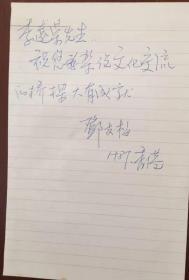 李远荣先生
祝您在架设文化交流
的桥梁大有成就
邓友梅
1987.香港